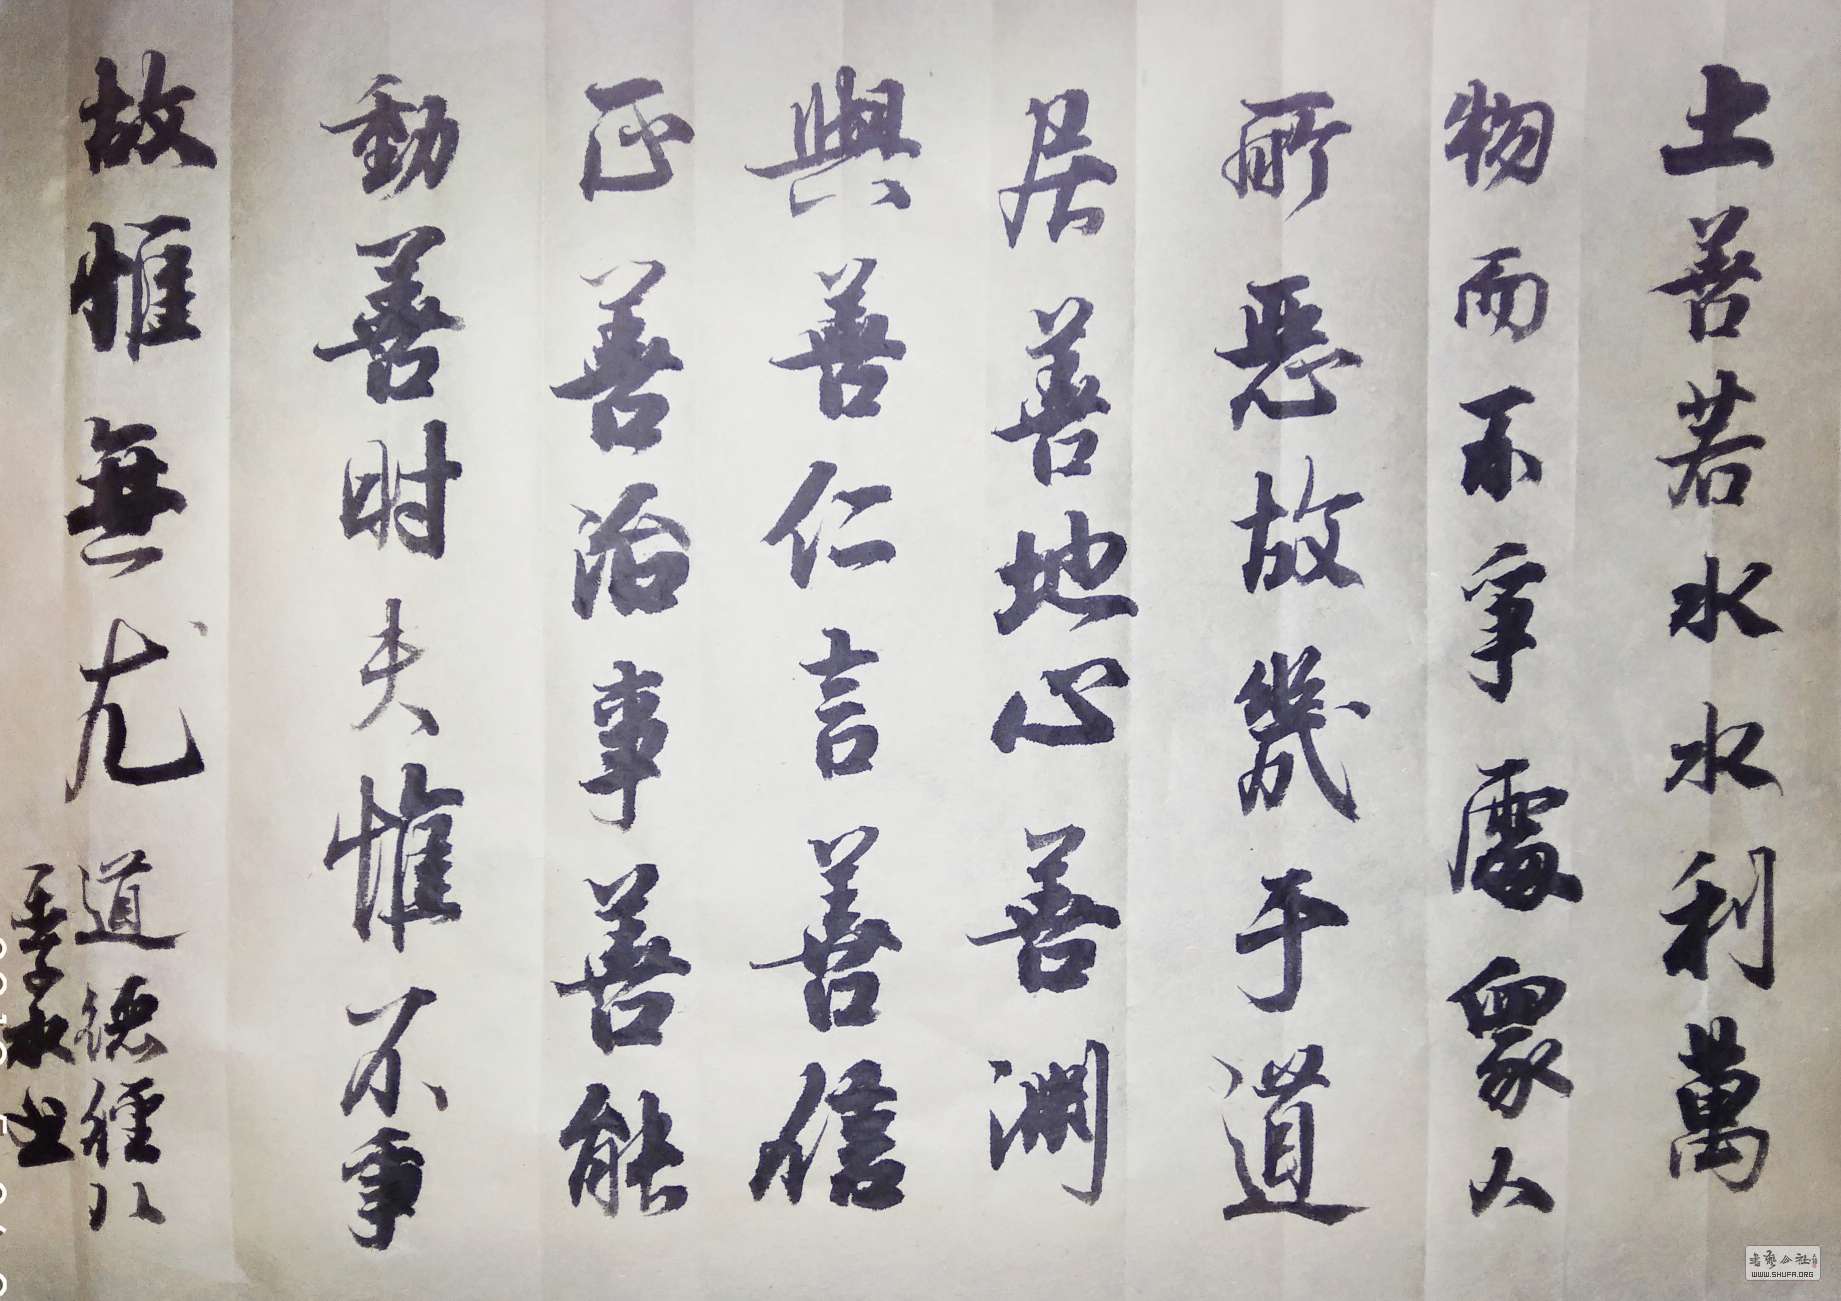 上善若水水利萬
物而不爭處眾人
所惡故幾于道
居善地心善淵
與善仁言善信
正善治事善能
動善時夫惟不爭
故惟無尤
道德經八
書藝公社
WWW.SHUFA.ORG